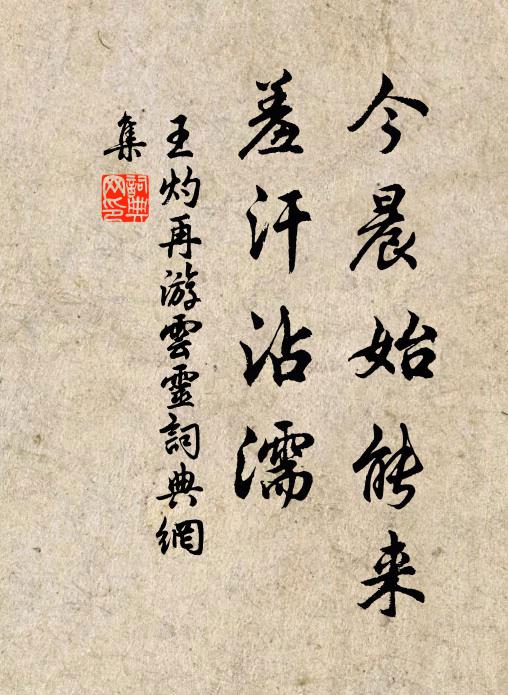 今晨始能来
羞汗沾濡
王灼再游雲靈詞典網
集
詞典
网印